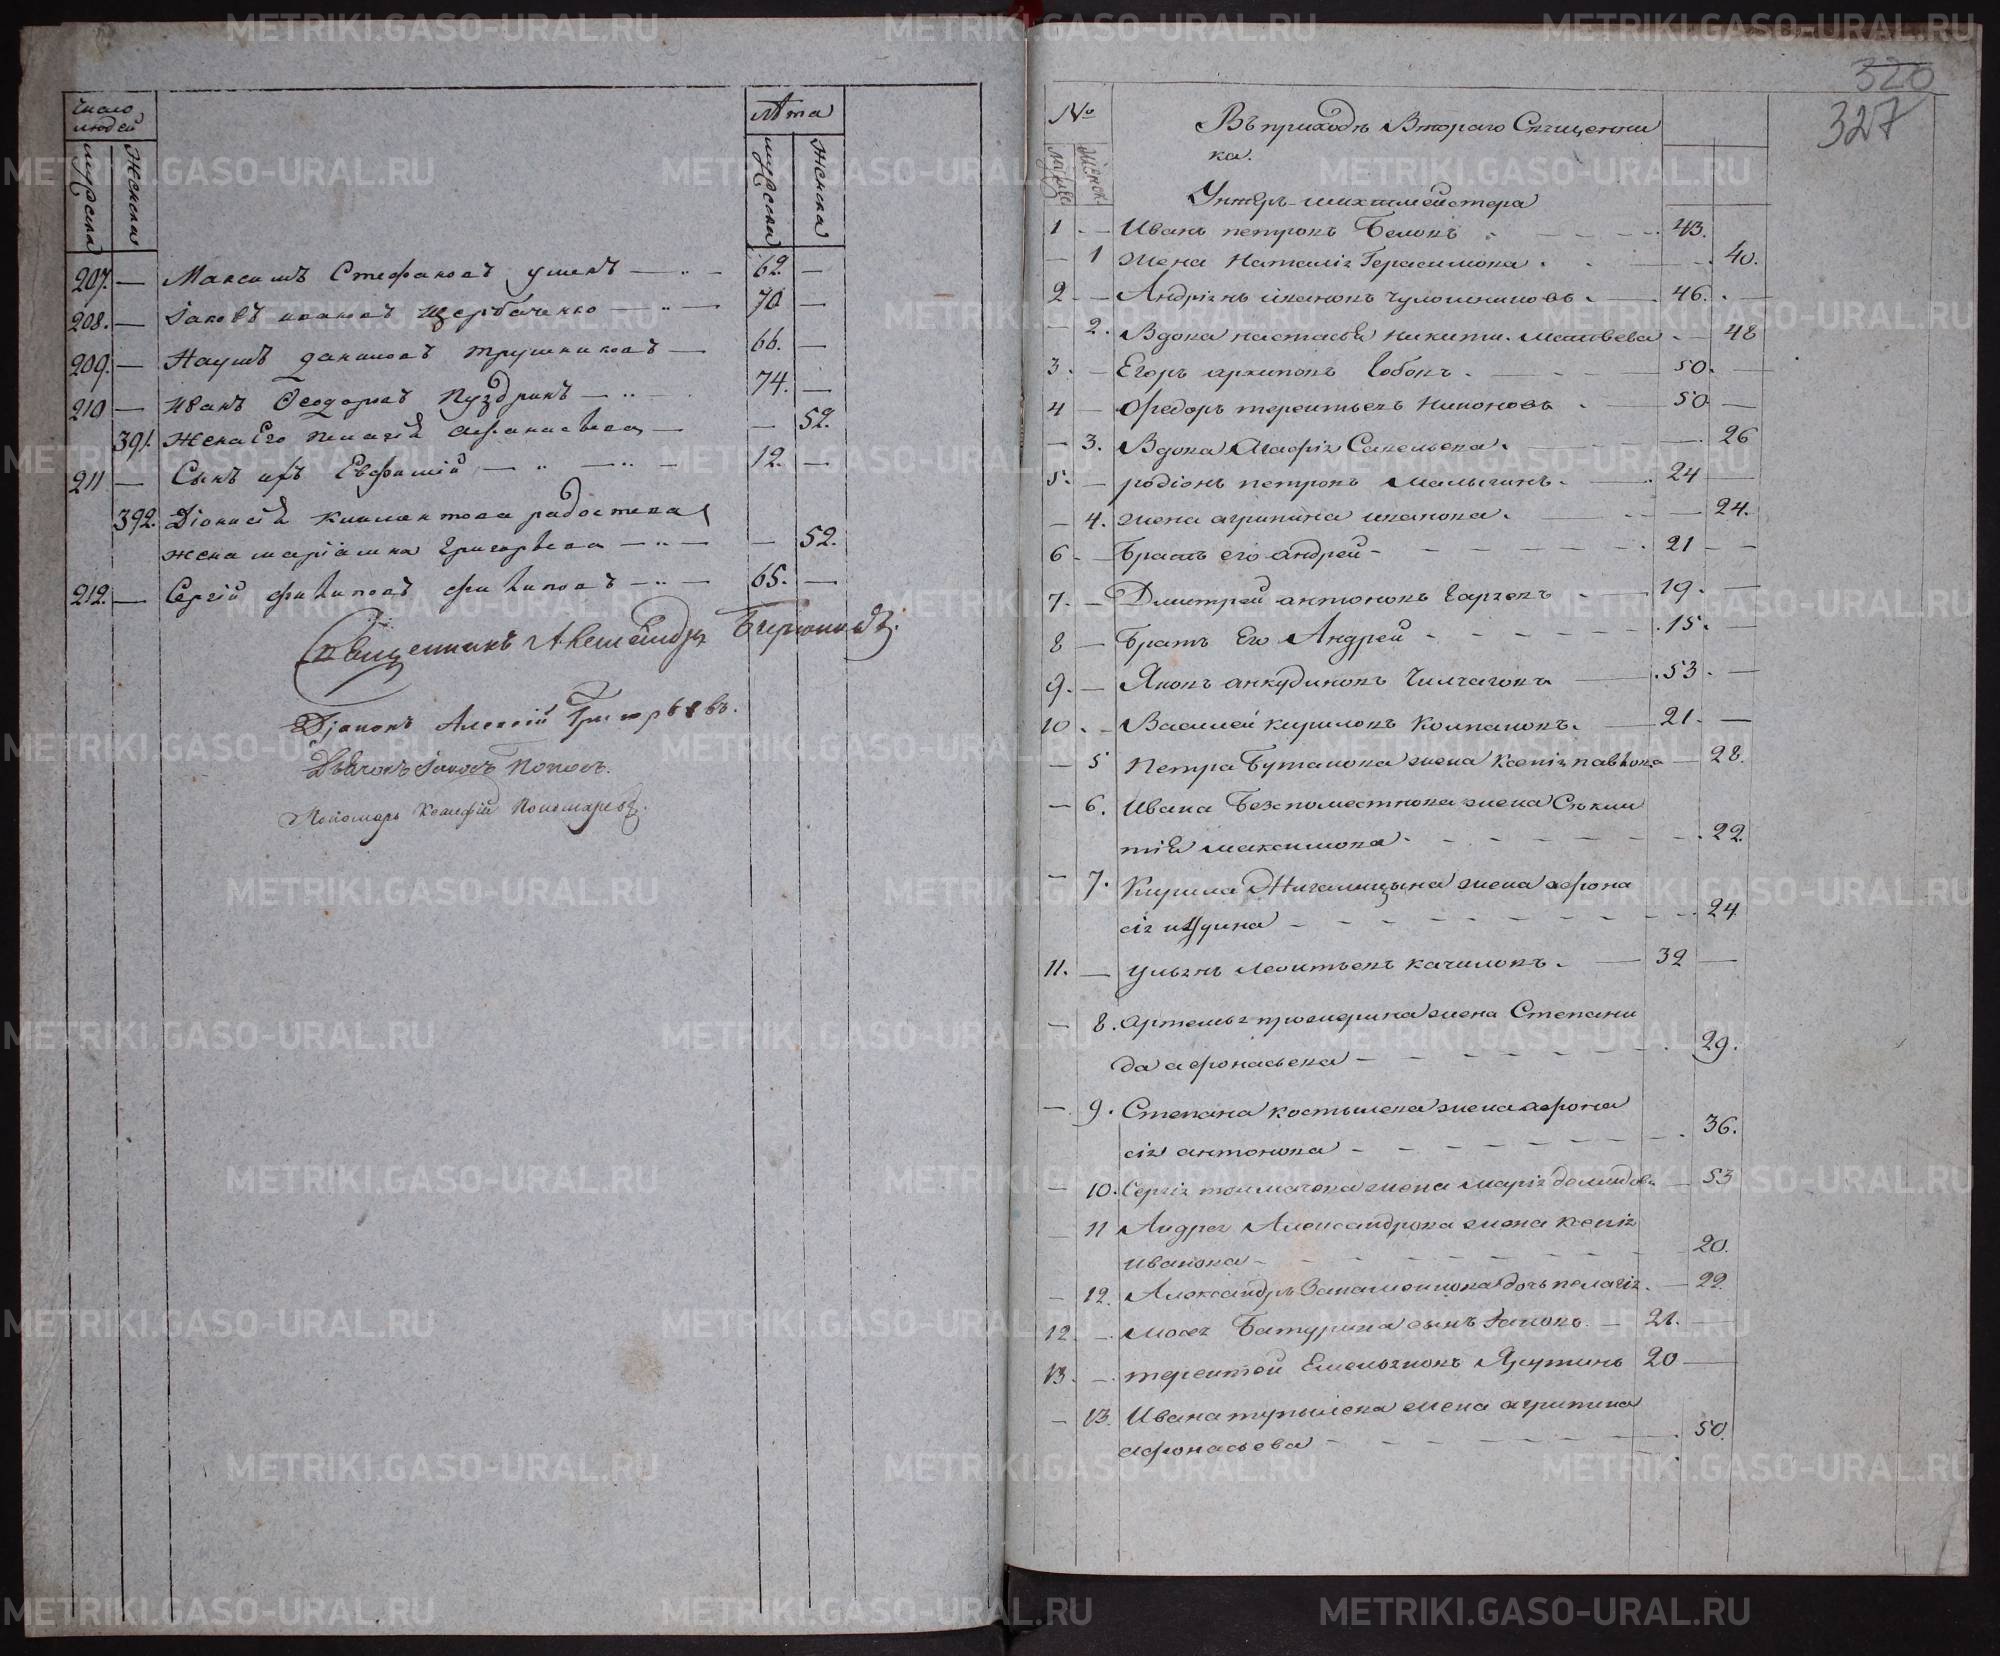 число людей
мужска
женска
лѣта
мужска
женска
207. — Максимъ Стефановъ — 62. —
208. — Iаковъ ивановъ Щербаченко — 70 —
209. — Наумъ даниловъ трушниковъ — 66. —
210 — иванъ Ѳеодоровъ Пуздринъ — 74. —
391. жена Его пелагiя афанасьева — — 52.
211 — Сынъ ихъ Евфимiй — 12. —
392. Дiонисiя климентова радостева
жена марiамна григорьева — — 52.
212. — Сергiй филиповъ филиповъ — 65. —
Священникъ Александр Бирюковъ.
Дiаконъ Алексiй Григорьевъ.
Дьячокъ Iаковъ Поповъ.
Пономарь Пономаревъ.
320
327
№
Въ приходѣ Втораго Священни
ка.
мужска
женск.
Унтеръ-шихтмейстера
1 — Иванъ петровъ Бѣловъ — 43.
— 1 жена Наталiя Герасимова — 40.
2 — Андріянъ ивановъ — 46. —
— 2. Вдова настасья никити. Матвѣева — 48
3. — Егоръ архиповъ Бобовъ — 50. —
4 — Федоръ терентьевъ Никоновъ — 50 —
— 3. Вдова Агафiя Савельева — 26
5. — родiонъ петровъ Малыгинъ — 24 —
— 4. жена агрипина иванова — 24.
6 — Братъ его андрей — 21 —
7. — Дмитрей антоновъ — 19. —
8 — Братъ Его Андрей — 15. —
9. — Яковъ анкудиновъ — 53. —
10. — Василей кириловъ Колпаковъ. — 21. —
— 5 Петра Буталова жена Ксенiя павлова — 28.
— 6. Ивана Безпоместнова жена Секли
тiя максимова — 22.
— 7. Кирила Жигалицына жена афона
сiя — 24.
11. — Ульянъ Леонтьевъ качаловъ. — 32 —
— 8. артемья проскурина жена Степани
да афонасьева — 29.
— 9. Степана костылева жена афона
сiя антонова — 36.
— 10. Сергiя толмачева жена марiя демидова — 53
— 11 Андрея Александрова жена ксенiя
иванова — 20.
— 12. Александръ дочь пелагiя. — 22.
12. — Мосея Батурина сынъ Яковъ. — 21. —
13. — терентей Емельяновъ Ярутинъ 20 —
— 13. Ивана турылева жена агрипина
афонасьева — 50.
METRIKI.GASO-URAL.RU